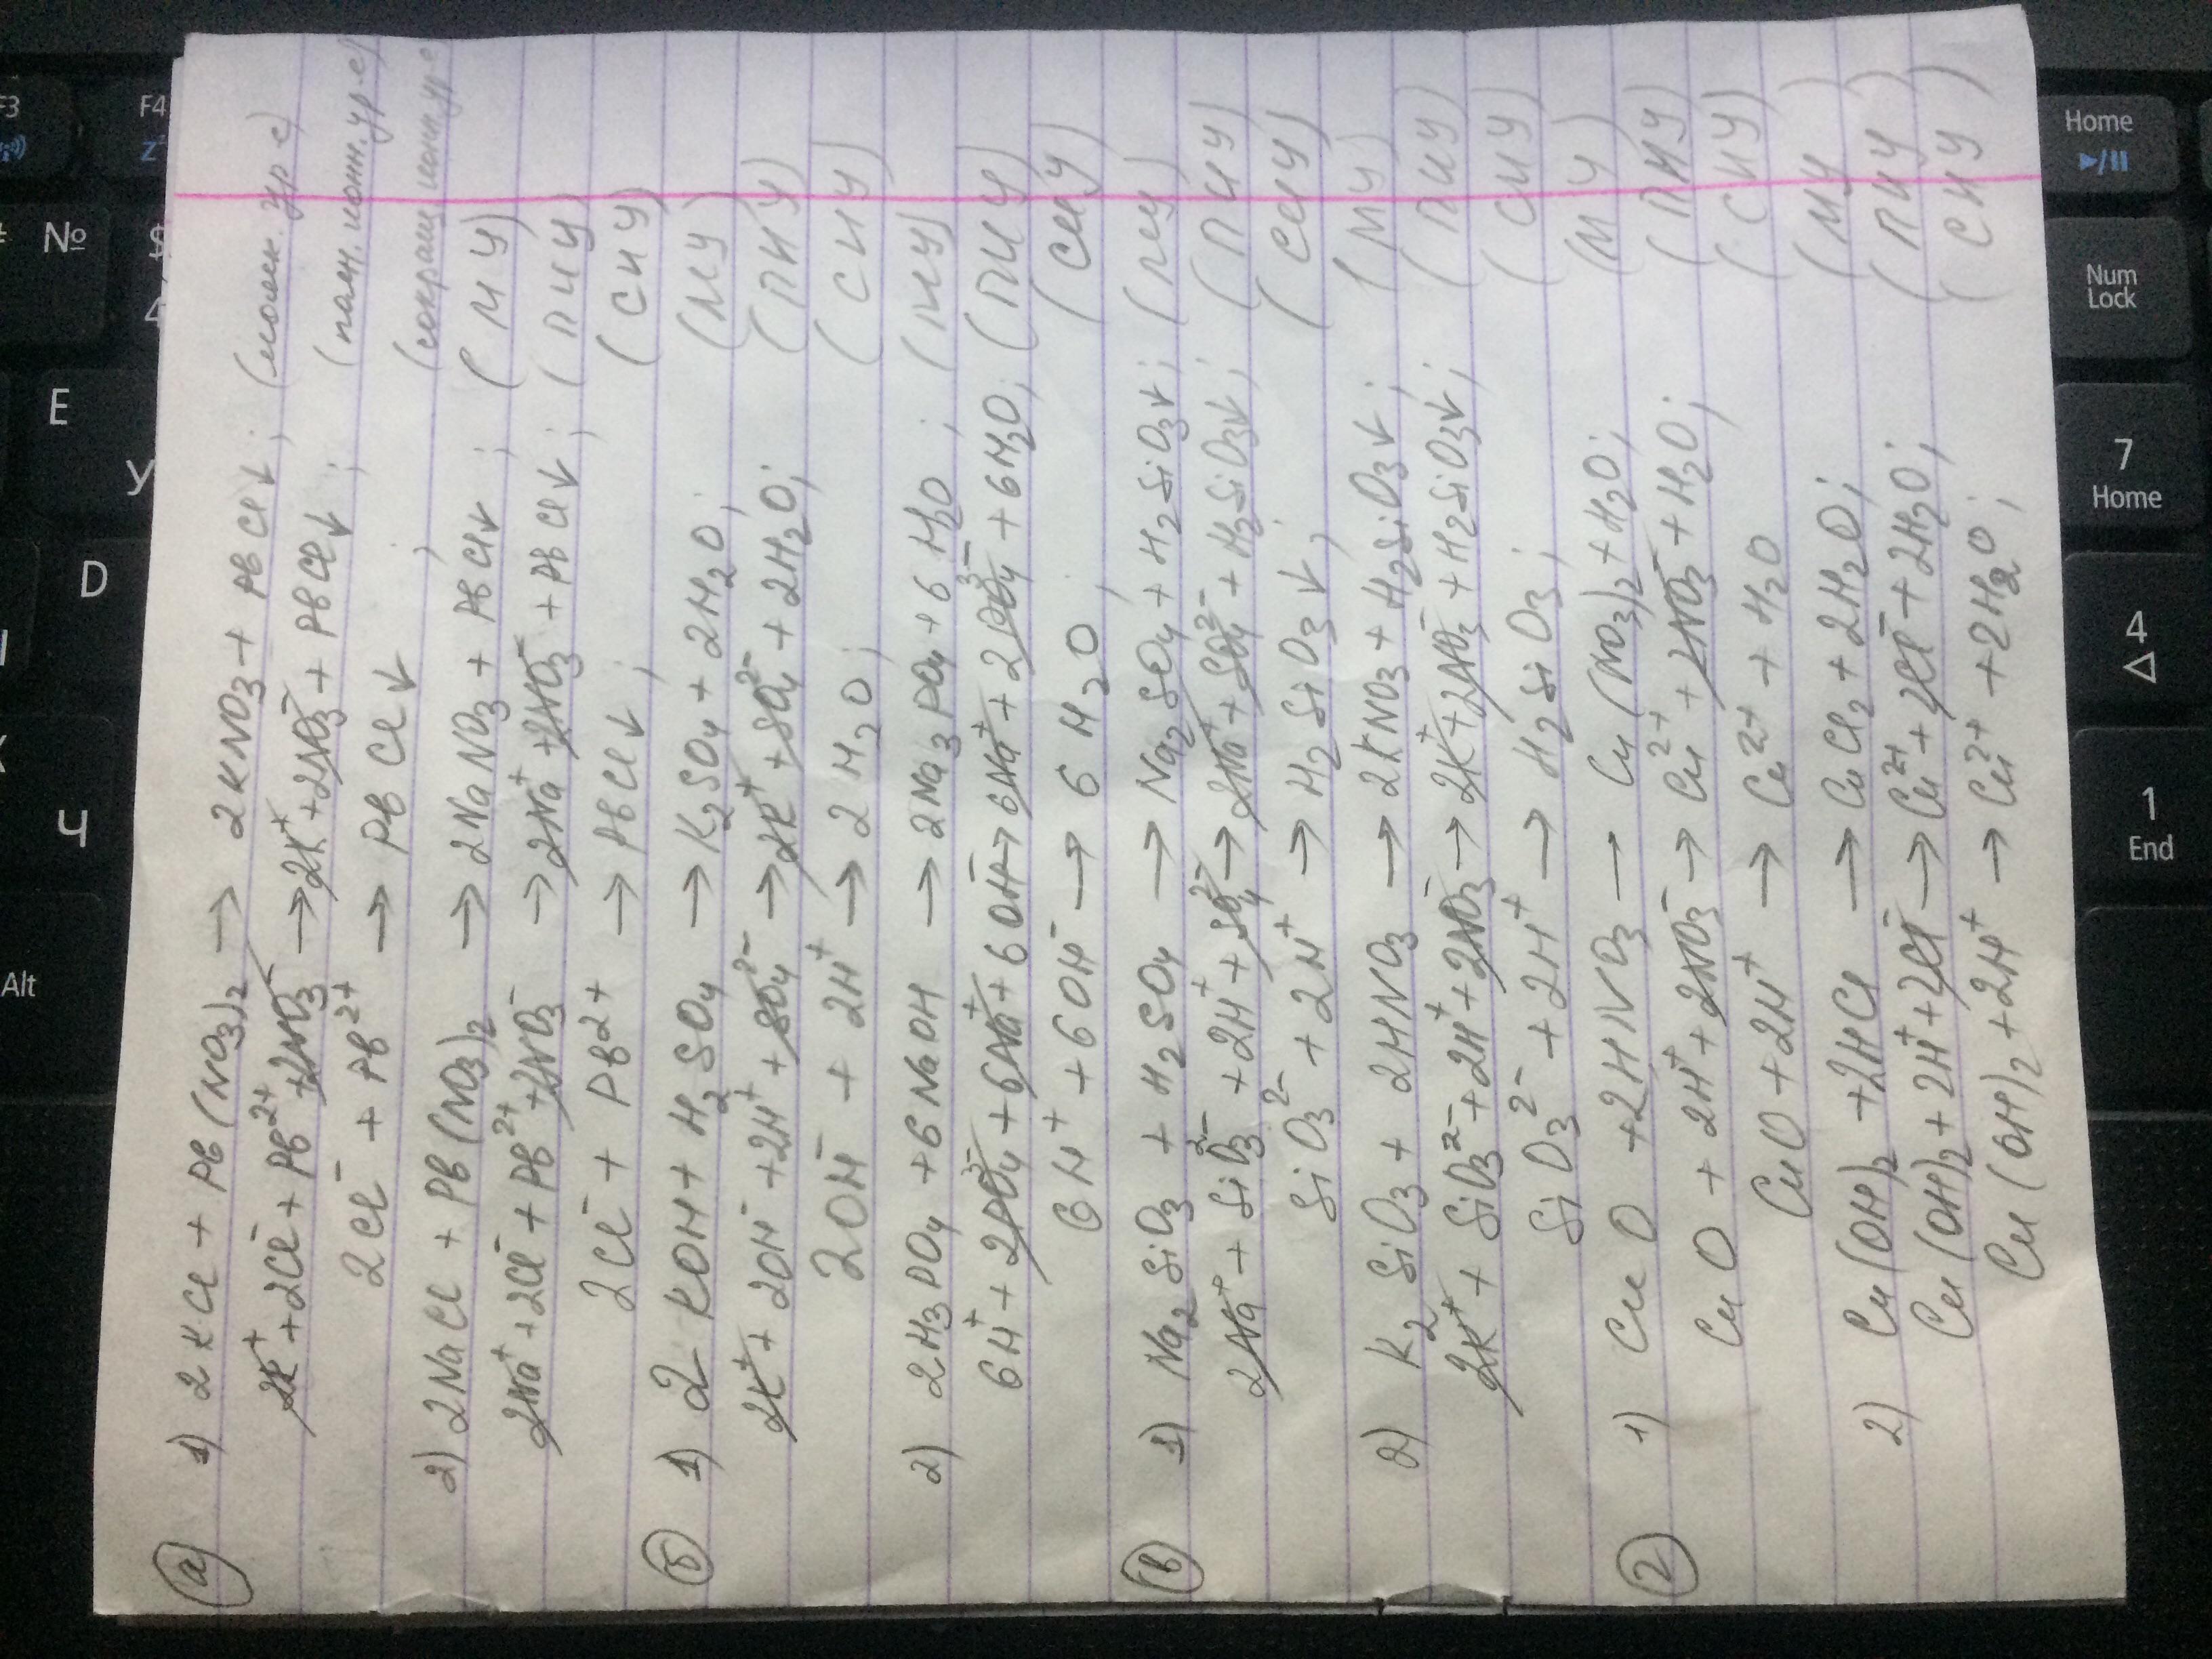 а) 1) 2KCl + Pb(NO3)2 → 2KNO3 + PbCl↓; (молек. ур-е)
2K⁺ + 2Cl⁻ + Pb²⁺ + 2NO3⁻ → 2K⁺ + 2NO3⁻ + PbCl↓; (полн. ионн. ур-е)
2Cl⁻ + Pb²⁺ → PbCl↓; (сокращ ионн ур-е)
2) 2NaCl + Pb(NO3)2 → 2NaNO3 + PbCl↓; (МУ)
2Na⁺ + 2Cl⁻ + Pb²⁺ + 2NO3⁻ → 2Na⁺ + 2NO3⁻ + PbCl↓; (ПИУ)
2Cl⁻ + Pb²⁺ → PbCl↓; (СИУ)
б) 1) 2KOH + H2SO4 → K2SO4 + 2H2O; (МУ)
2K⁺ + 2OH⁻ + 2H⁺ + SO4²⁻ → 2K⁺ + SO4²⁻ + 2H2O; (ПИУ)
2OH⁻ + 2H⁺ → 2H2O; (СИУ)
2) 2H3PO4 + 6NaOH → 2Na3PO4 + 6H2O; (МУ)
6H⁺ + 2PO4³⁻ + 6Na⁺ + 6OH⁻ → 6Na⁺ + 2PO4³⁻ + 6H2O; (ПИУ)
6H⁺ + 6OH⁻ → 6H2O; (СИУ)
в) 1) Na2SiO3 + H2SO4 → Na2SO4 + H2SiO3↓; (МУ)
2Na⁺ + SiO3²⁻ + 2H⁺ + SO4²⁻ → 2Na⁺ + SO4²⁻ + H2SiO3↓; (ПИУ)
SiO3²⁻ + 2H⁺ → H2SiO3↓; (СИУ)
2) K2SiO3 + 2HNO3 → 2KNO3 + H2SiO3↓; (МУ)
2K⁺ + SiO3²⁻ + 2H⁺ + 2NO3⁻ → 2K⁺ + 2NO3⁻ + H2SiO3↓; (ПИУ)
SiO3²⁻ + 2H⁺ → H2SiO3; (СИУ)
г) 1) CuO + 2HNO3 → Cu(NO3)2 + H2O; (МУ)
CuO + 2H⁺ + 2NO3⁻ → Cu²⁺ + 2NO3⁻ + H2O; (ПИУ)
CuO + 2H⁺ → Cu²⁺ + H2O (СИУ)
2) Cu(OH)2 + 2HCl → CuCl2 + 2H2O; (МУ)
Cu(OH)2 + 2H⁺ + 2Cl⁻ → Cu²⁺ + 2Cl⁻ + 2H2O; (ПИУ)
Cu(OH)2 + 2H⁺ → Cu²⁺ + 2H2O; (СИУ)
F3
F4
№
$
4
E
У
D
Ч
Alt
Home
Num Lock
7
Home
4
1
End